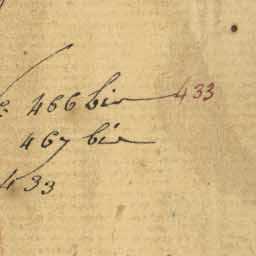 466 bis 433
467 bis
433